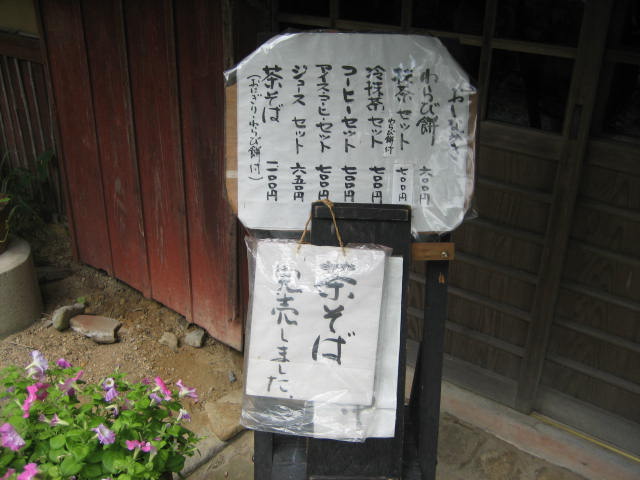 おしながき
わらび餅 六〇〇円
抹茶セット 七〇〇円
わらび餅付
冷抹茶セット 七〇〇円
コーヒーセット 七〇〇円
アイスコーヒーセット 七〇〇円
ジュースセット 六五〇円
茶そば 一一〇〇円
(おにぎり・わらび餅付)
茶そば
完売しました。